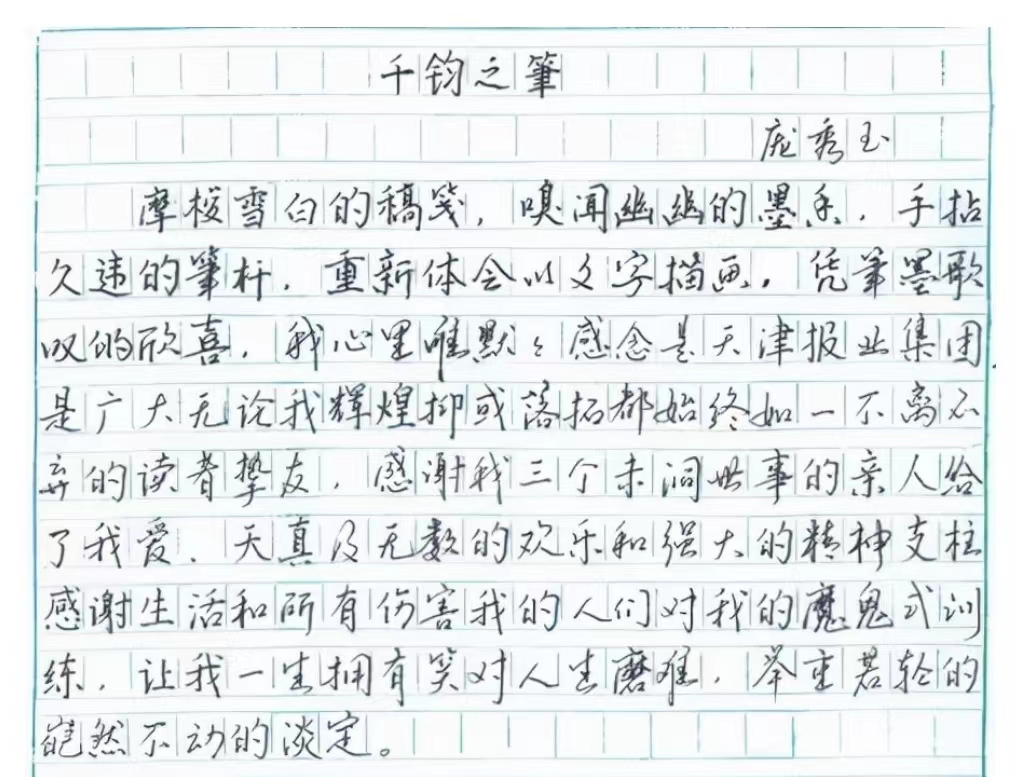 千钧之筆
庞秀玉
摩梭雪白的稿笺，嗅闻幽幽的墨香，手拈
久违的筆杆，重新体会以文字描画，凭筆墨歌
叹的欣喜，我心里唯默々感念是天津报业集团
是广大无论我辉煌抑或落拓都始终如一不离不
弃的读者挚友，感谢我三个未涧世事的亲人给
了我爱、天真及无数的欢乐和强大的精神支柱
感谢生活和所有伤害我的人们对我的魔鬼式训
练，让我一生拥有笑对人生磨难，举重若轻的
然不动的淡定。